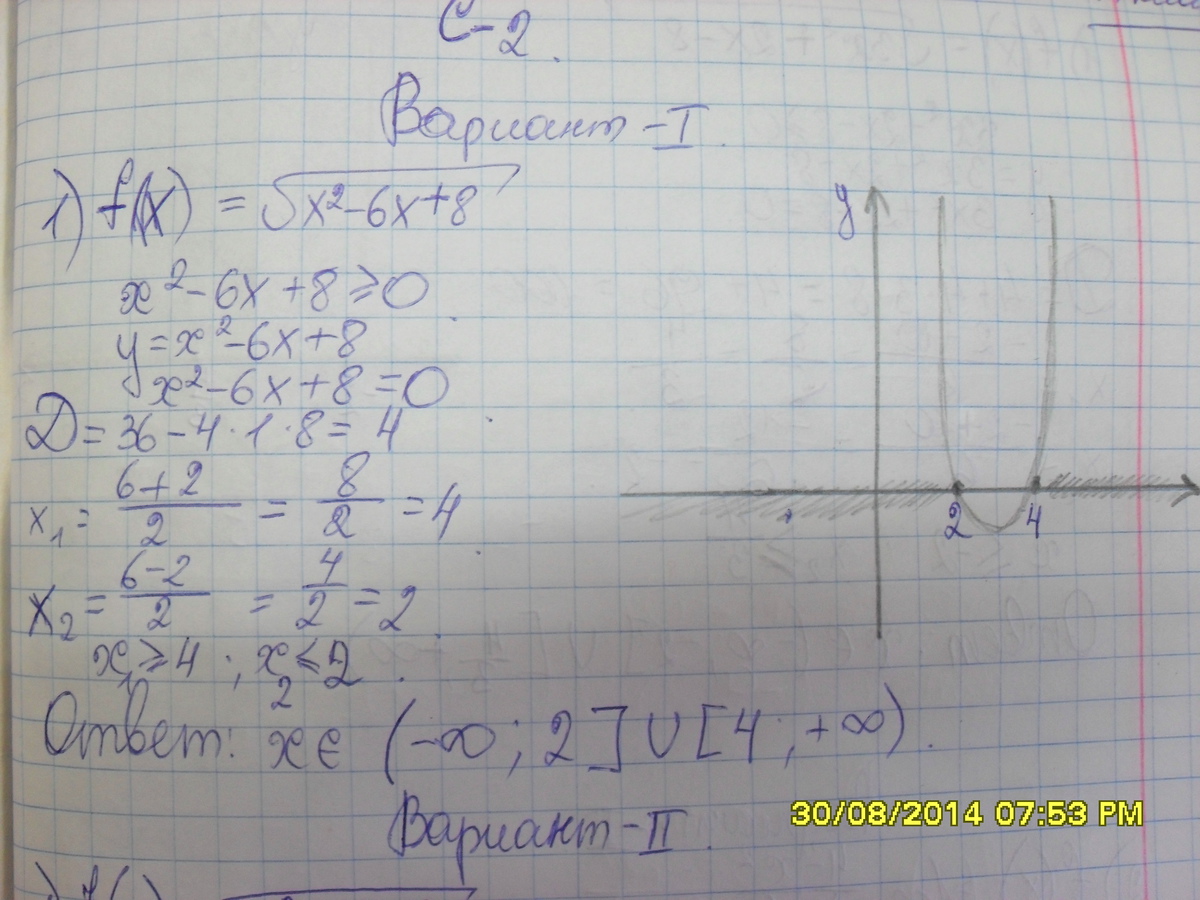 С-2.
Вариант-I.
1) f(x) = √x²-6x+8
x²-6x+8⩾0
y=x²-6x+8
x²-6x+8=0
D=36-4·1·8=4
x₁=(6+2)/2=8/2=4
x₂=(6-2)/2=4/2=2
x₁⩾4; x₂⩽2.
Ответ: x∈(-∞; 2]∪[4; +∞).
y
2 4
Вариант-II.
30/08/2014 07:53 PM